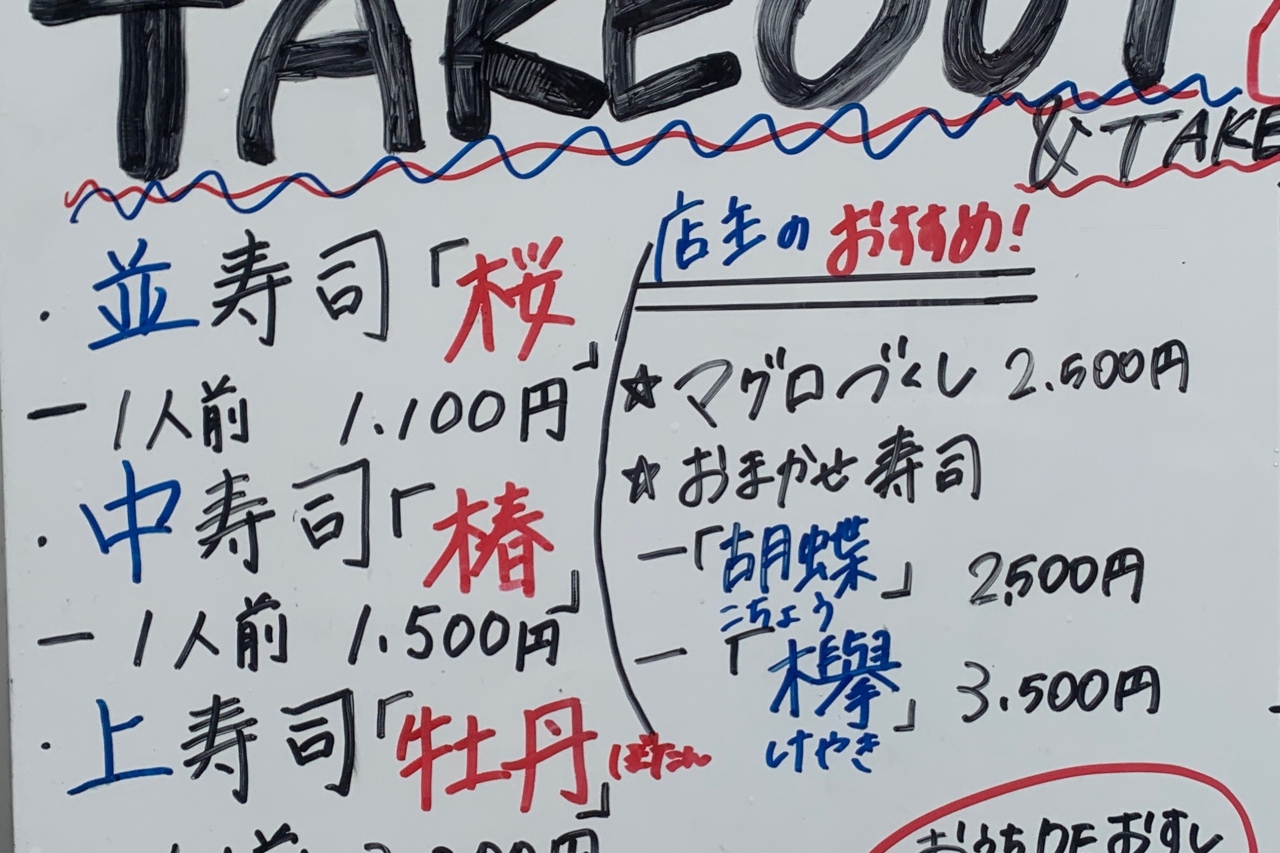 TAKEOUT
& TAKE
・並寿司「桜」
ー1人前 1.100円
・中寿司「椿」
ー1人前 1.500円
・上寿司「牡丹」ぼたん
店主のおすすめ!
☆マグロづくし 2.500円
☆おまかせ寿司
ー「胡蝶」 2,500円
こちょう
ー「欅」 3.500円
けやき
おうちDEおすし